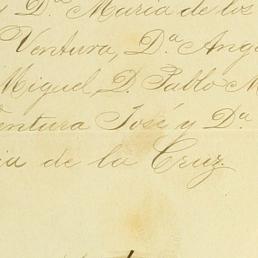 y D.ª María de los
Ventura, D.ª Ang
Miguel, D. Pablo M
Ventura José y D.ª
ia de la Cruz.